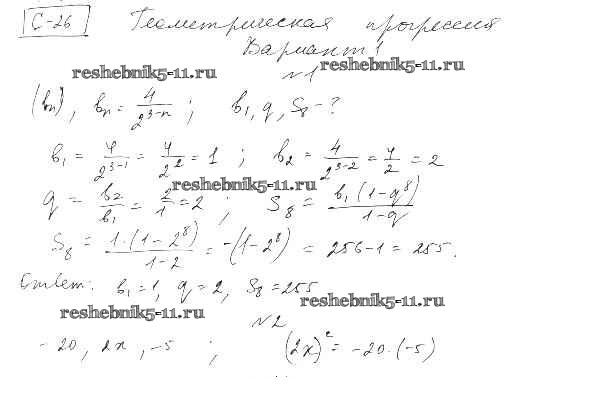 С-26 Геометрическая прогрессия
Вариант 1
reshebnik5-11.ru №1 reshebnik5-11.ru
(bn), bn = 4/2^(3-n) ; b₁, q, S₈ - ?
b₁ = 4/2^(3-1) = 4/2² = 1 ; b₂ = 4/2^(3-2) = 4/2 = 2
reshebnik5-11.ru
q = b₂/b₁ = 2/1 = 2 ; S₈ = b₁(1-q⁸)/1-q
S₈ = 1·(1-2⁸)/1-2 = -(1-2⁸) = 256-1 = 255.
Ответ: b₁=1, q=2, S₈=255
reshebnik5-11.ru
reshebnik5-11.ru
№2
-20, 2x, -5 ; (2x)² = -20·(-5)